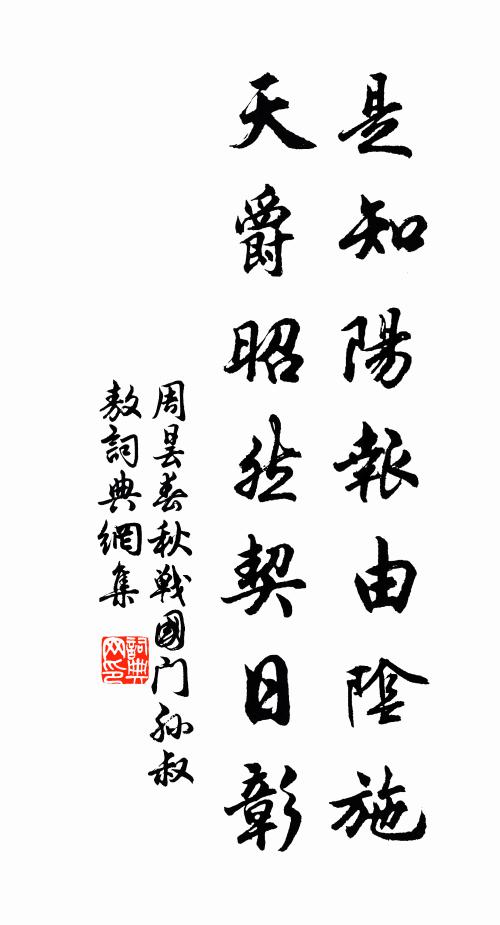 是知陽報由陰施
天爵昭然契日彰
周曇春秋戰國门孫叔
敖詞典網集
詞典網印